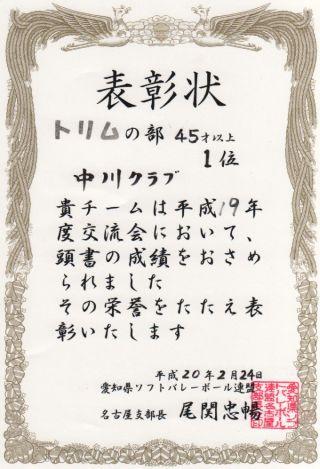 表彰状
トリムの部 45才以上
1位
中川クラブ
貴チームは平成19年
度交流会において、
頭書の成績をおさめ
られました
その栄誉をたたえ表
彰いたします
平成20年2月24日
愛知県ソフトバレーボール連盟
名古屋支部長 尾関忠暢